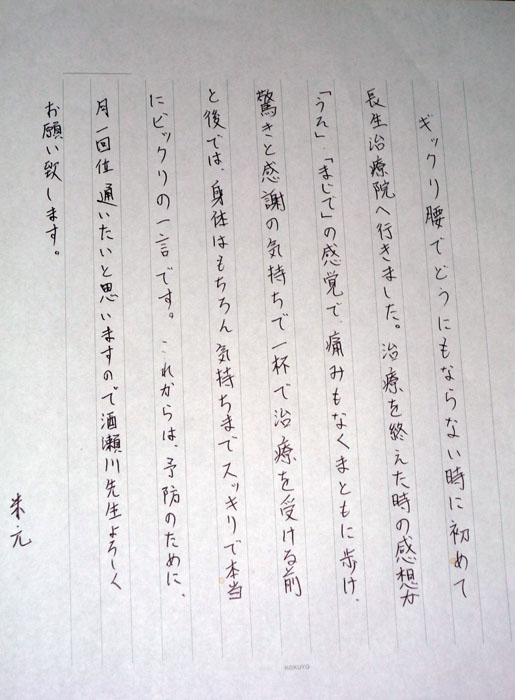 ギックリ腰でどうにもならない時に初めて
長生治療院へ行きました。治療を終えた時の感想が
「うそ」、「まじで」の感覚で、痛みもなくまともに歩け、
驚きと感謝の気持ちで一杯で治療を受ける前
と後では、身体はもちろん気持ちまでスッキリで本当
にビックリの一言です。これからは、予防のために、
月一回位通いたいと思いますので酒瀬川先生よろしく
お願い致します。
KOKUYO